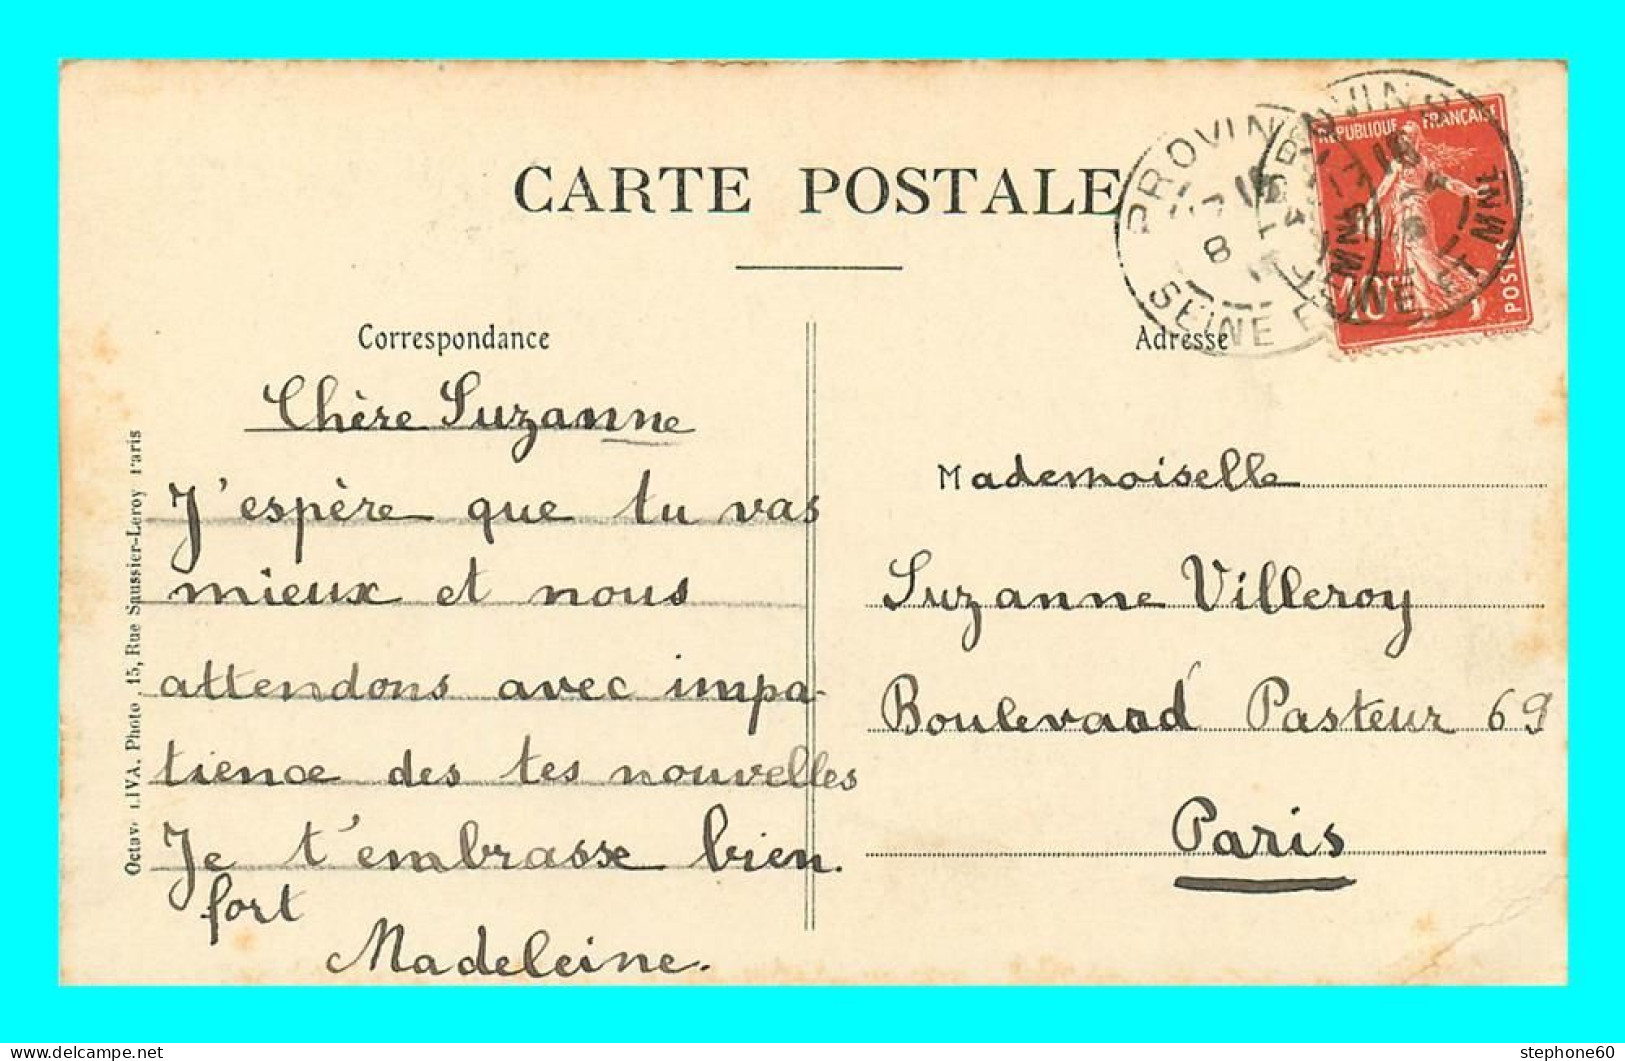 CARTE POSTALE
Correspondance
Chère Suzanne
J'espère que tu vas
mieux et nous
attendons avec impa-
tience des tes nouvelles
Je t'embrasse bien.
fort
Madeleine.
Adresse
Mademoiselle
Suzanne Villeroy
Boulevard Pasteur 69
Paris
PROVINS
SEINE ET MNE
REPUBLIQUE FRANÇAISE
10c
POSTES
LIVA, Photo, 15, Rue Saussier-Leroy Paris
stephone60